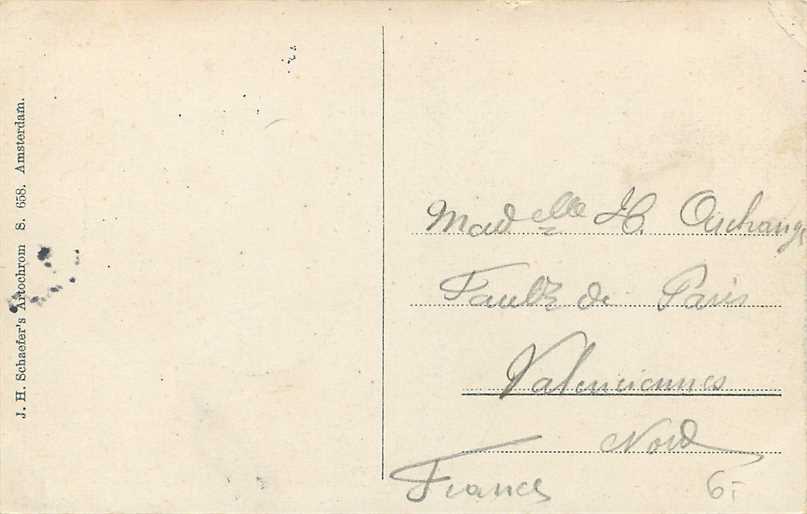 J. H. Schaefer's Artochrom S. 658. Amsterdam.
Mad elle H.
Faub de Paris
Valenciennes
Nord
France
6-